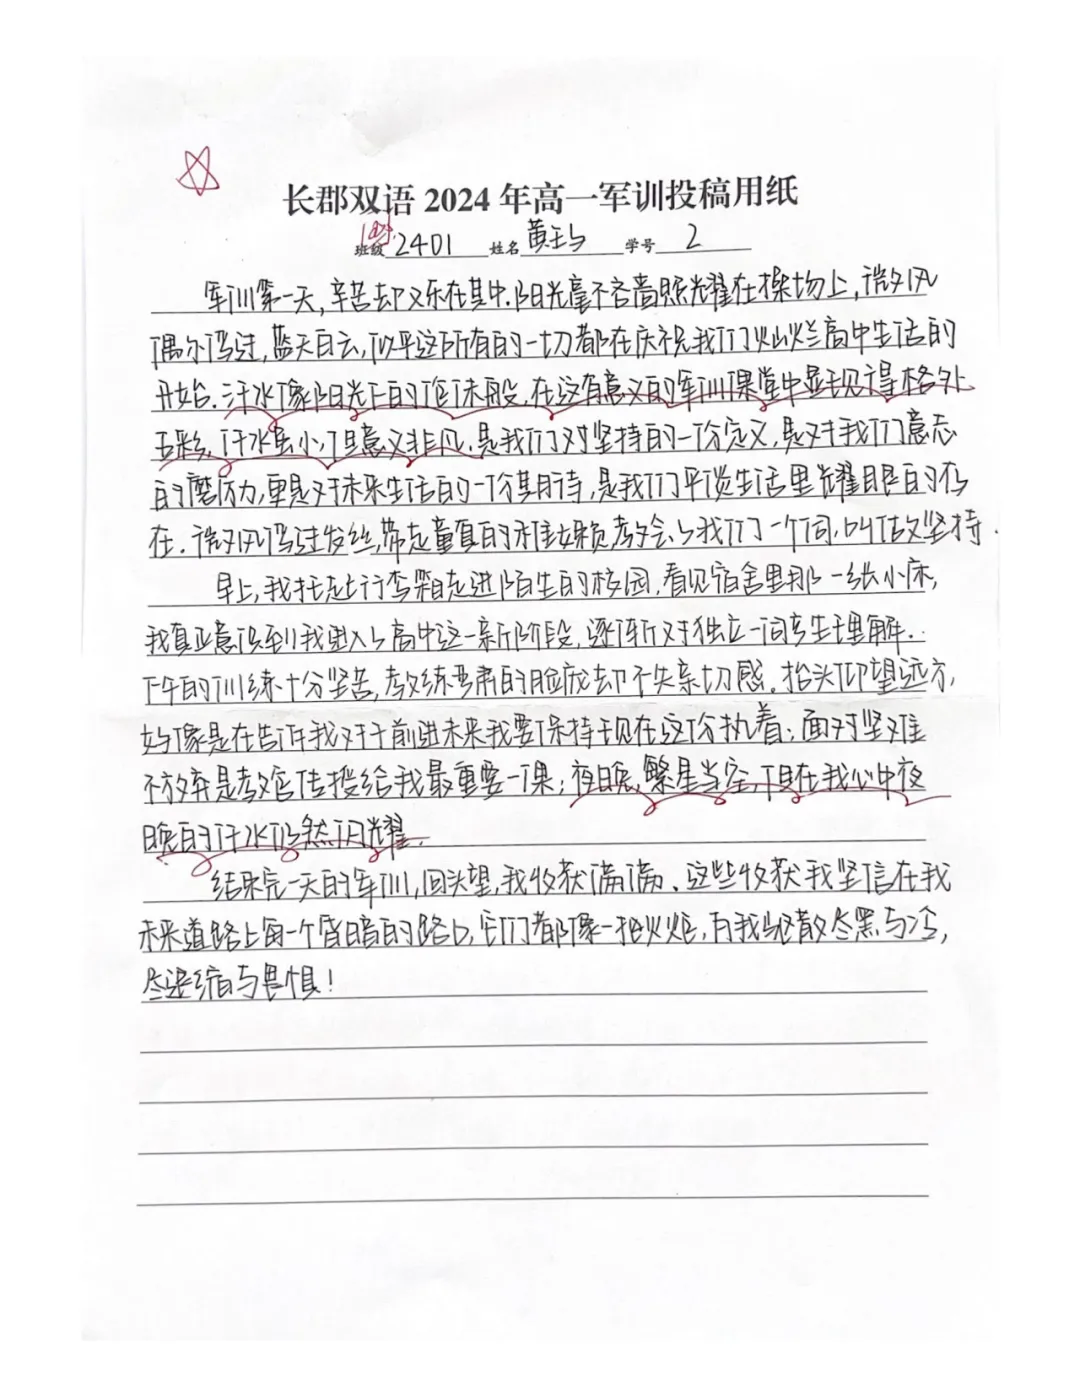 长郡双语 2024 年高一军训投稿用纸
班级 2401 姓名 黄 学号 2
军训第一天,辛苦却又乐在其中.阳光毫不吝啬照耀在操场上,微风
偶尔淌过,蓝天白云,似乎这所有的一切都在庆祝我们灿烂高中生活的
开始.汗水像阳光下的,在这有意义的军训课堂中显现得格外
五彩.汗水虽小,但意义非凡.是我们对坚持的一份定义,是对我们意志
的磨历力,更是对未来生活的一份其期待,是我们平淡生活里光耀眼的存
在.微风淌过发丝,带走童真的稚嫩教会我们一个词,叫做坚持.
早上,我托起行李箱走进陌生的校园,看见宿舍里那一张小床,
我真正意识到我进入了高中这一新阶段,逐渐对独立一词产生理解..
下午的训练十分坚苦,教练严肃的脸庞却不失亲切感.抬头仰望远方,
好像是在告诉我对于前进未来我要保持现在这份执着;面对坚难
不放弃是教官传授给我最重要一课;夜晚,繁星当空,但在我心中夜
晚的汗水仍然闪耀.
结束完一天的军训,回头望,我收获满满、这些收获我坚信在我
未来道路上每一个昏暗的路口,它们都像一把火炬,为我驱散尽黑与冷,
尽退缩与畏惧!